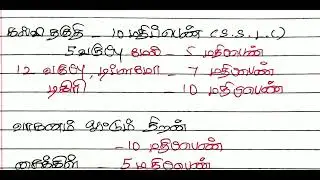 கல்வி தகுதி - 10 மதிப்பெண் (S.S.L.C)
5 வகுப்பு மேல் - 5 மதிப்பெண்
12 வகுப்பு, டிப்ளமோ - 7 மதிப்பெண்
டிகிரி 10 மதிப்பெண்
வாகனம் ஓட்டும் திறன்
- 10 மதிப்பெண்
சைக்கிள் - 5 மதிப்பெண்